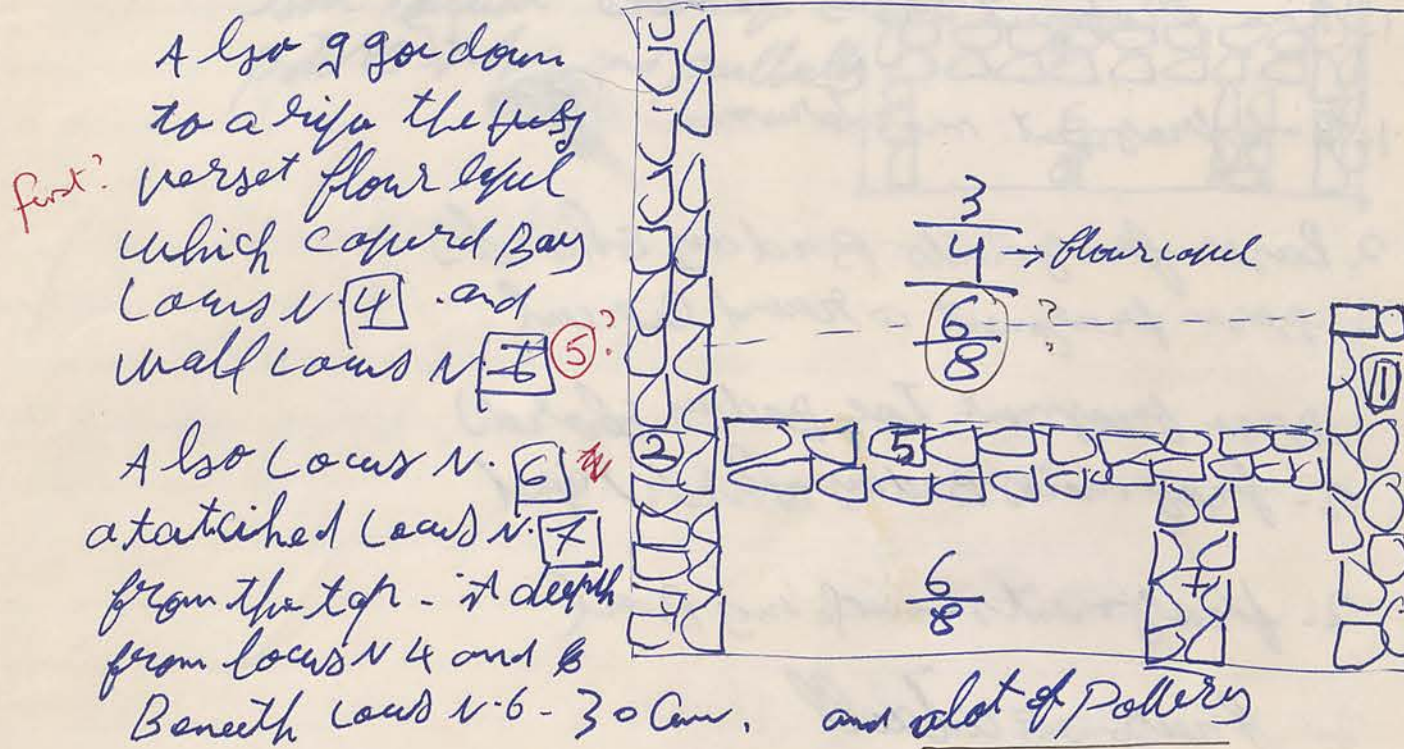 Also I go down
to a the
first? verset flour level
which coverd Bay
Locus N. 4 . and
wall Locus N. 5?
Also Locus N. 6
atatcihed Locus N. 7
from the top - it deepth
from locus N 4 and
Beneith Locus N. 6 - 30 Cm. and alot of Pottery
3
4 → flour level
6 ?
8
1
2 5
7
6
8